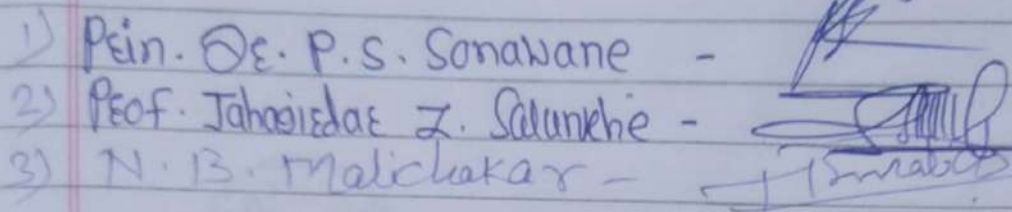 1) Prin. Dr. P. S. Sonawane -
2) Prof. Jahagirdar Z. Salunkhe -
3) N. B. Malichakar -